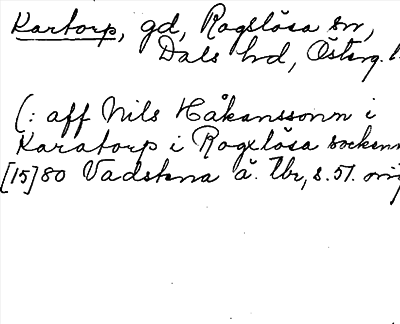 Kartorp, gd, Rogslösa sn,
Dals hd, Österg. l.
(: aff Nils Håkanssonn i
Karatorp i Rogxlösa sockenn
[15]80 Vadstena ä. Tbr, s. 51. orig